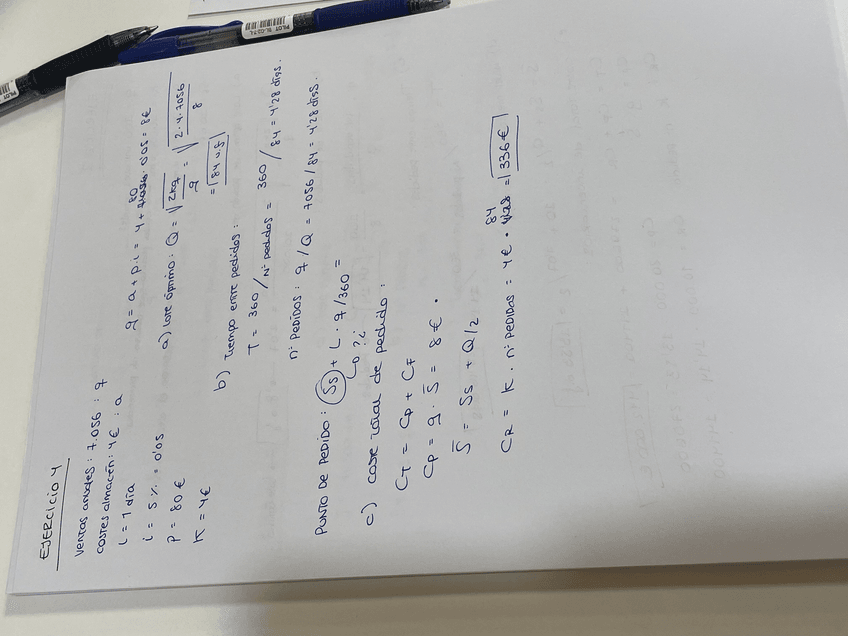 EJERCICIO 4
Ventas anuales: 7.056 : q
costes almacén: 4€ : a
L = 1 día
i = 5 %. = 0'05
P = 80 €
K = 4€
g = a + p.i = 4 + 80 · 0'05 = 8€
a) Lote óptimo: Q = √2Kq/g = √2·4·7056/8
= 84 u.f
b) Tiempo entre pedidos:
T = 360/Nº pedidos = 360/84 = 4'28 días.
nº PEDIDOS: q/Q = 7056/84 = 4'28 días.
PUNTO DE PEDIDO: Ss + L · q/360 =
Lo ?¿
c) coste total de pedido:
CT = Cp + CF
Cp = g · S̄ = 8 € ·
S̄ = Ss + Q/2
CR = K · nº PEDIDOS = 4€ · 84 = 336€
PILOT
PILOT